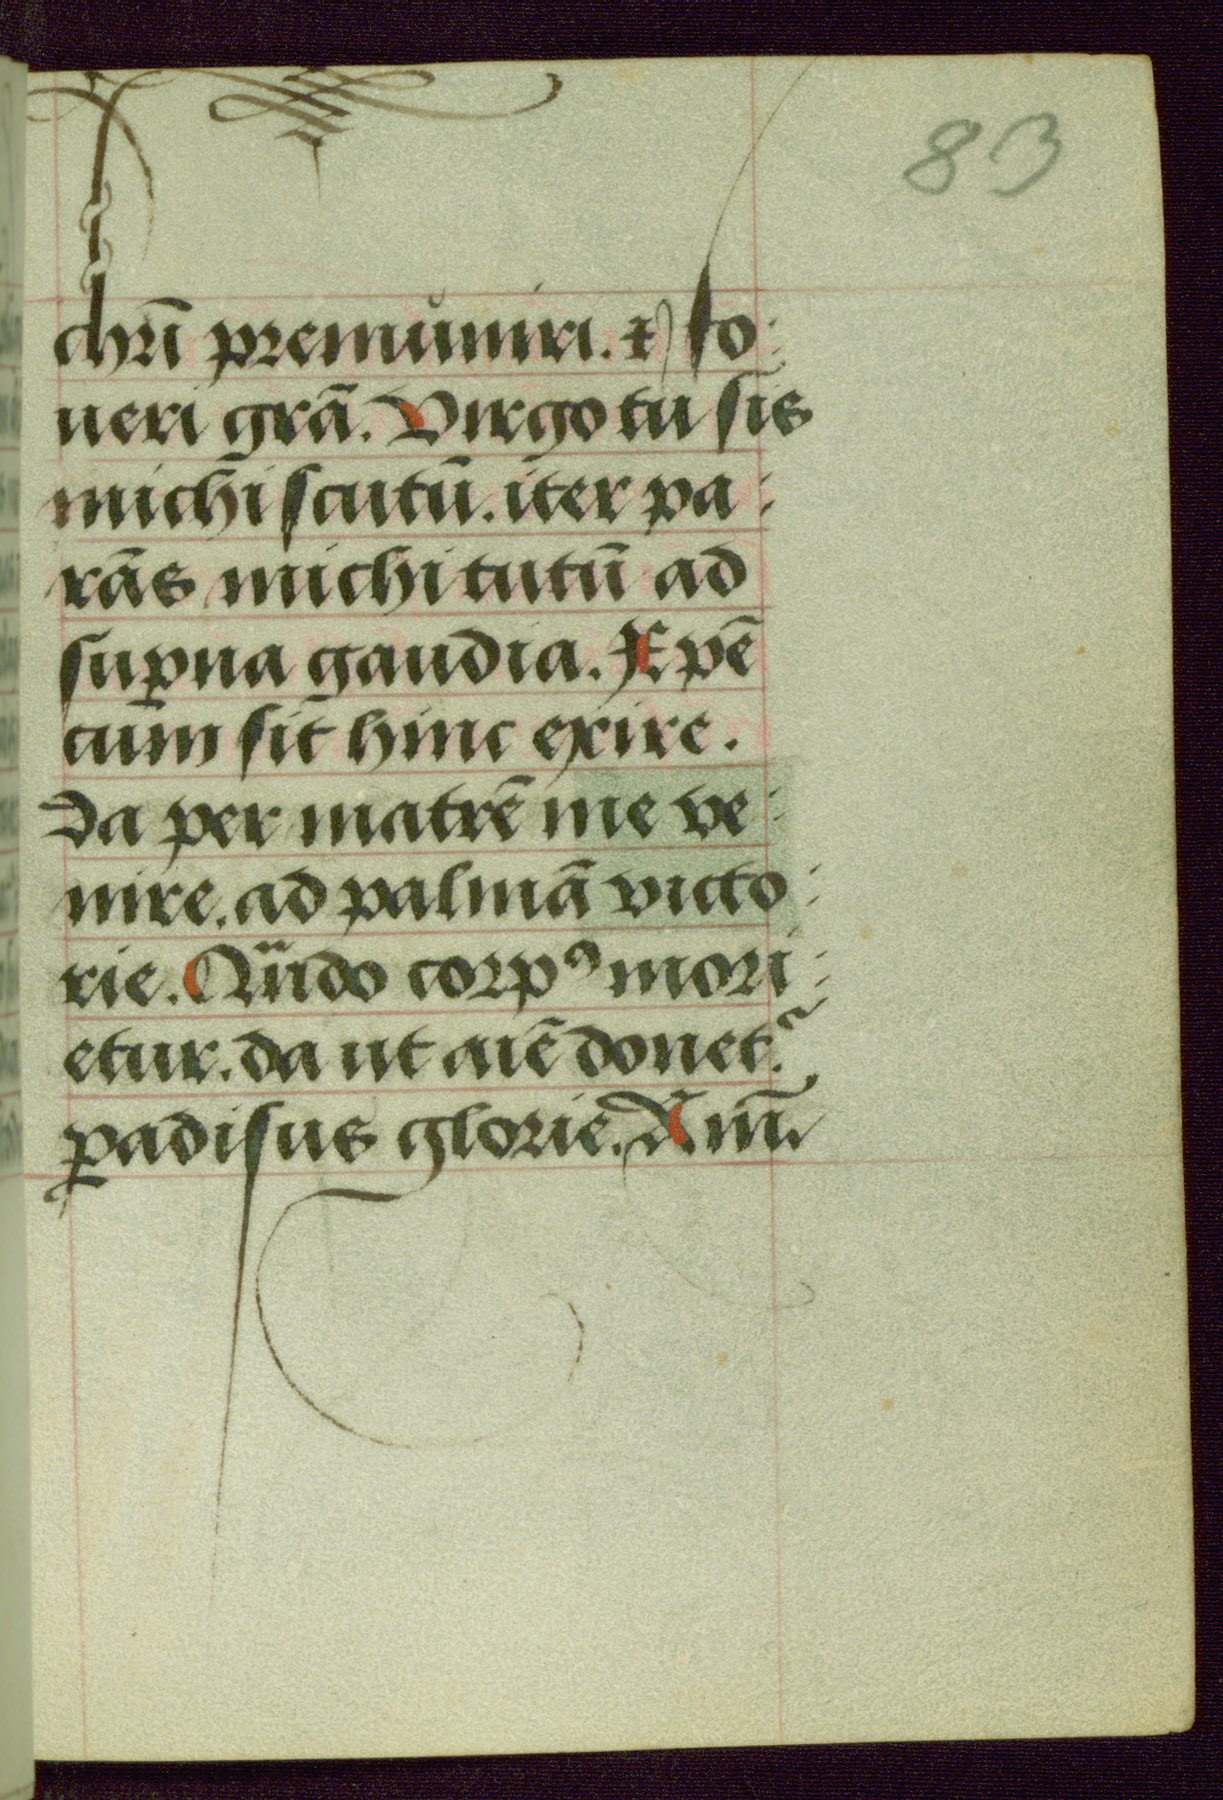 83
chrī premuniri. ⁊ fo:
ueri grā. Virgo tu sis
michi scutū. iter pa:
rās michi tutū ad
sup̱na gaudia. Xpē
cum sit hinc exire.
da per matrē me ve:
nire. ad palmā victo:
rie. Qn̄do corpꝰ mori:
etur. da ut aīe donet᷑.
ꝑadisus glorie. Am̄.